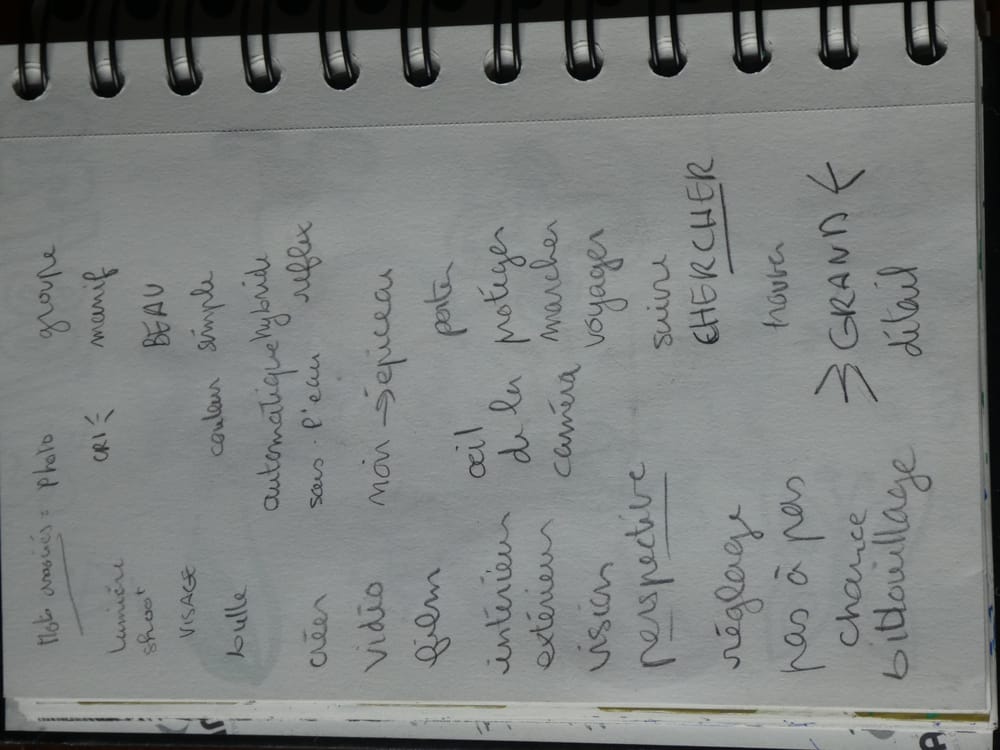 Mots associés = Photo groupe
lumière CRI manif
shoot
VISAGE BEAU
bulle couleur simple
automatique hybride
créer sous l'eau reflex
vidéo →
film porter
intérieur oeil protéger
extérieur de la marcher
vision caméra voyager
perspective suivre
CHERCHER
réglage trouver
pas à pas > GRAND <
chance
bidouillage détail